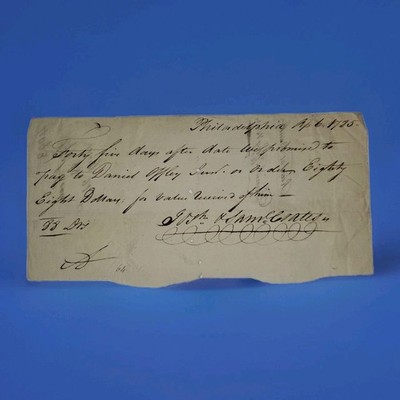 Philadelphia Ap 6. 1795.
Forty five days after date we promised to
pay to Daniel Offley Junr. or order, Eighty
Eight Dollars, for value received of him —
88 Drs
Josh & Saml Coates